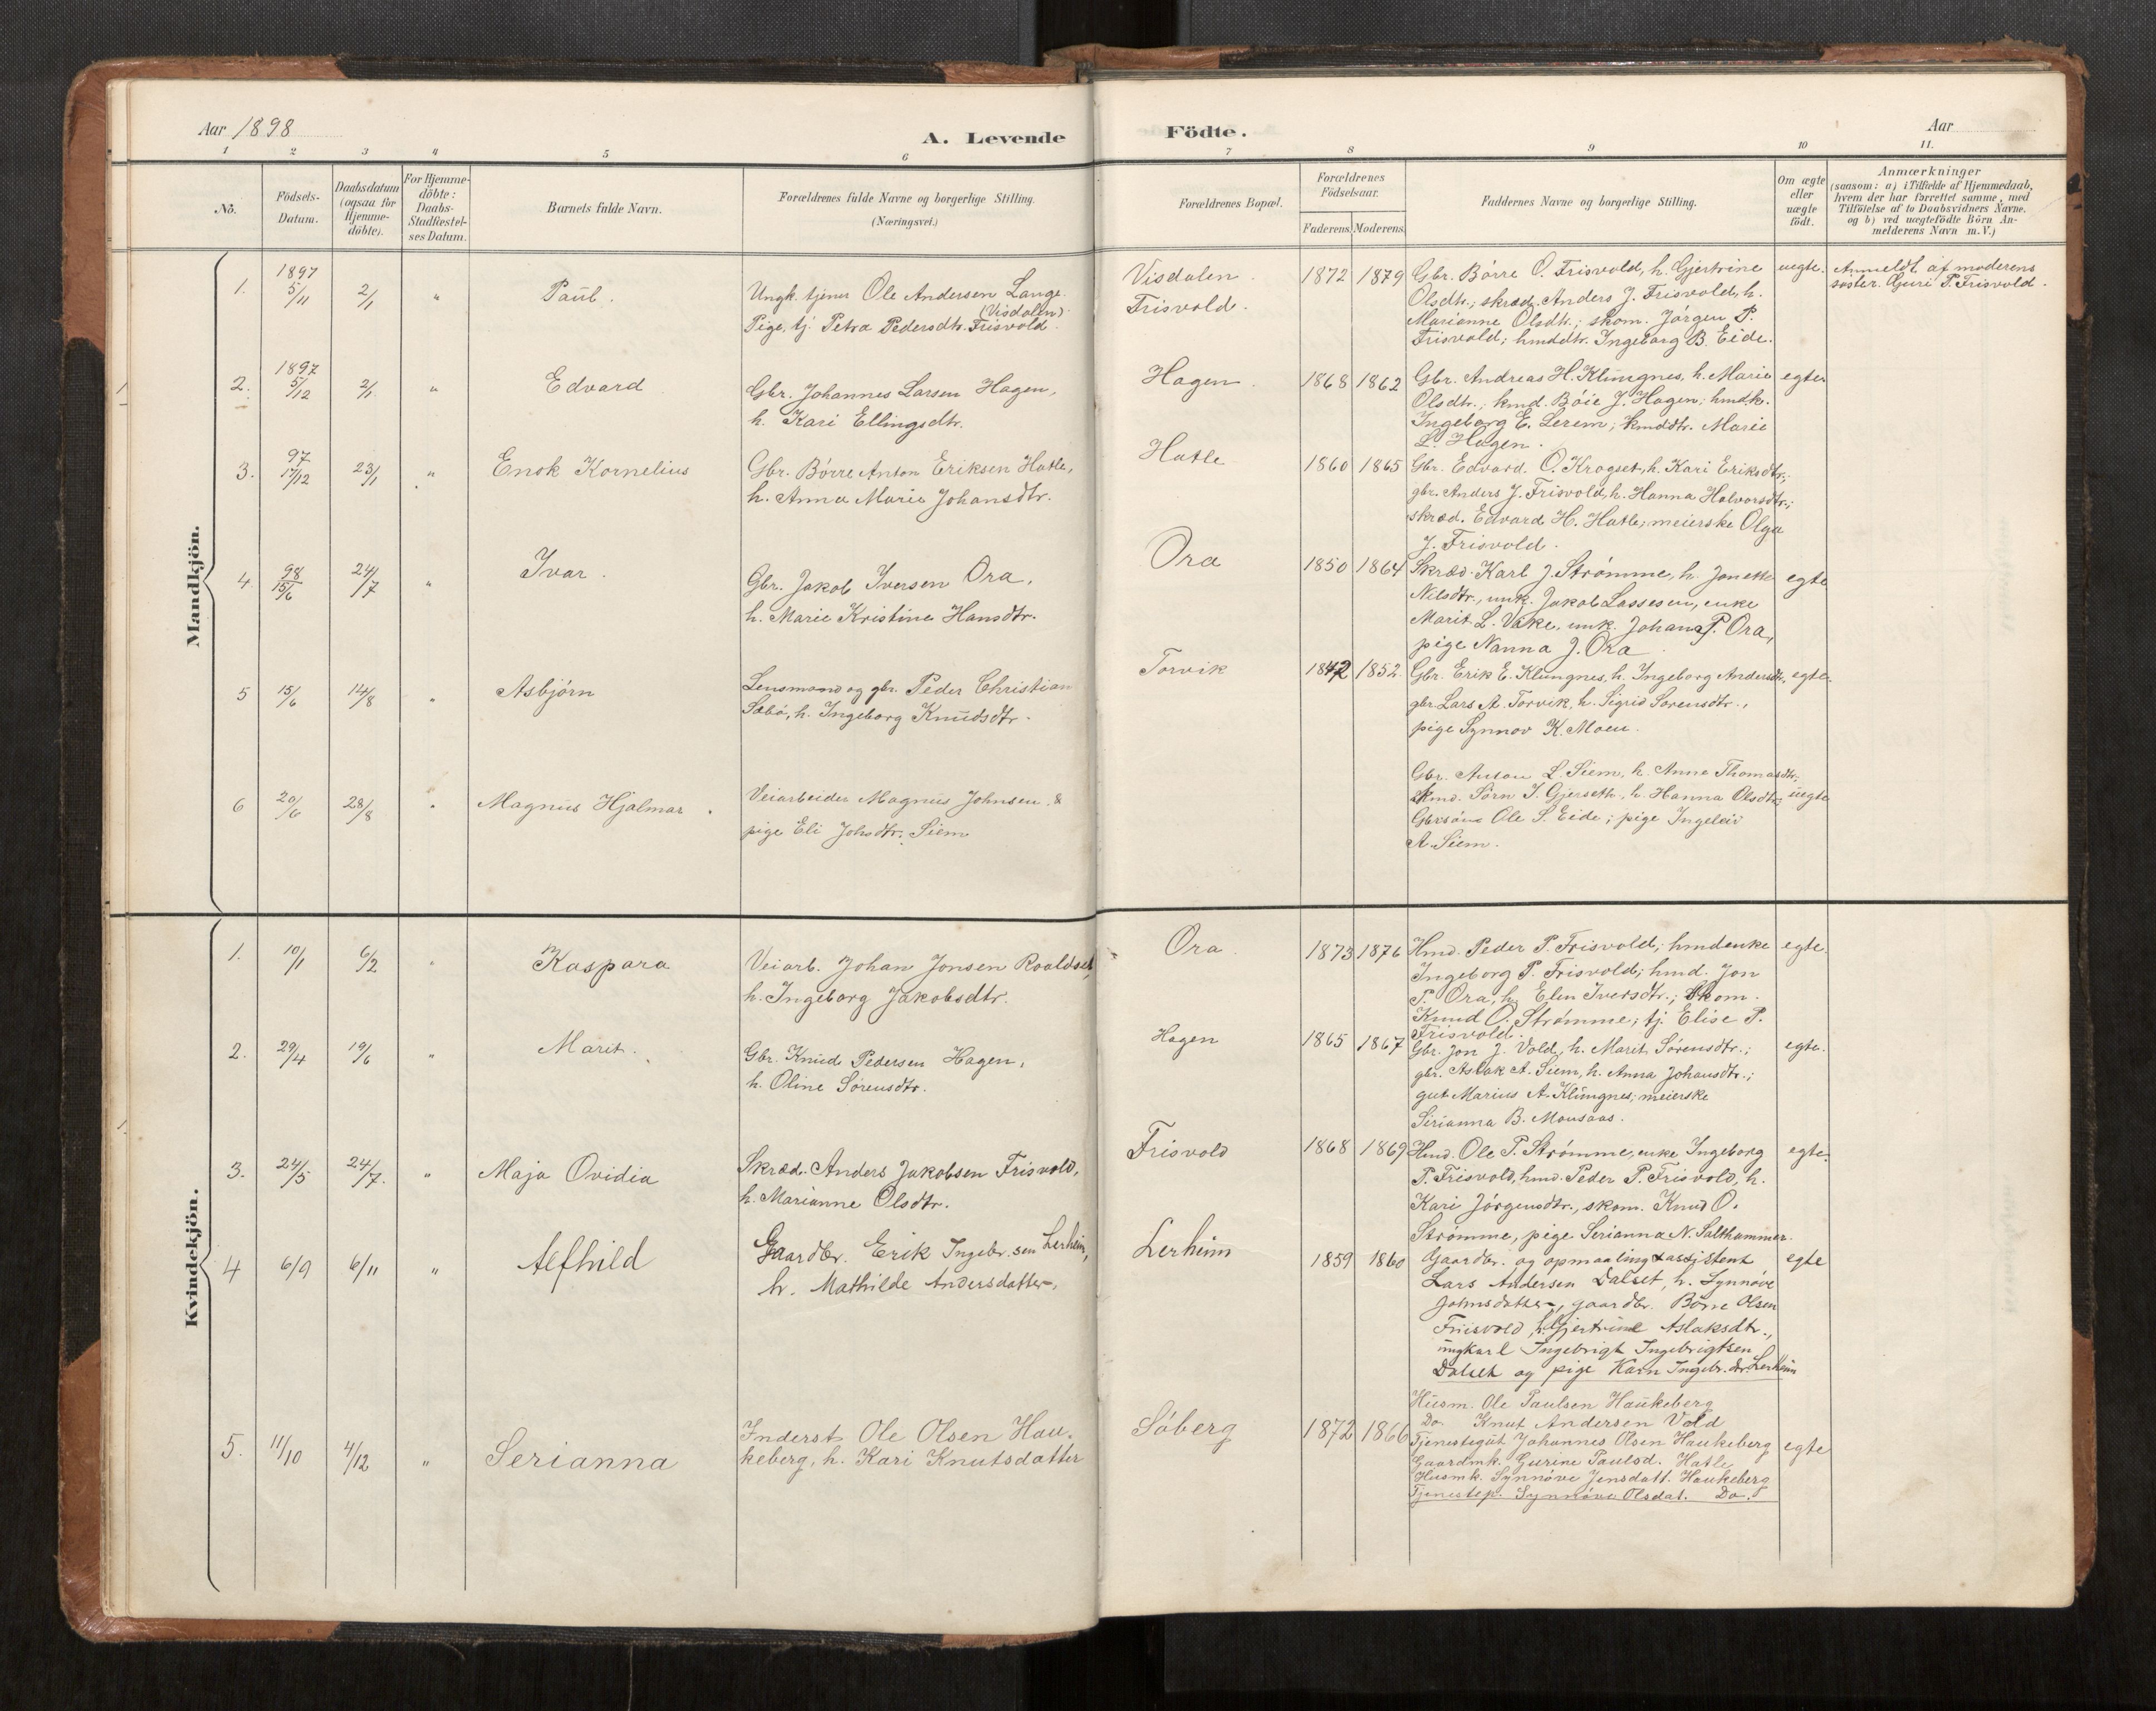 Aar 1898
A. Levende
Födte.
Aar
1 2 3 4 5 6 7 8 9 10 11.
No.
Födsels-
Datum.
Daabsdatum
(ogsaa for
Hjemme-
döbte).
For Hjemme-
döbte:
Daabs-
Stadfæstel-
ses Datum.
Barnets fulde Navn.
Forældrenes fulde Navne og borgerlige Stilling.
(Næringsvei.)
Forældrenes Bopæl.
Forældrenes
Födselsaar.
Faderens Moderens
Faddernes Navne og borgerlige Stilling.
Om ægte
eller
uægte
födt.
Anmærkninger
(saasom: a) i Tilfælde af Hjemmedaab,
hvem der har forrettet samme, med
Tilföielse af to Daabsvidners Navne.
og b) ved uægtefödte Börn An-
melderens Navn m. V.)
Mandkjön.
1. 1897 5/11 2/1 " Paul.
Ungk. tjener Ole Andersen Lange
(Visdalen)
Pige, tj. Petra Pedersdtr. Frisvold.
Visdalen.
Frisvold.
1872 1879
Gbr. Börre O. Frisvold, h. Gjertrine
Olsdtr.; skræd. Anders J. Frisvold, h.
Marianne Olsdtr.; skom. Jörgen P.
Frisvold; hmddtr. Ingeborg B. Eide.
uegte.
Anmeldt af moderens
söster Guri P. Frisvold.
2. 1897 5/12 2/1 " Edvard
Gbr. Johannes Larsen Hagen,
h. Kari Ellingsdtr.
Hagen.
1868 1862
Gbr. Andreas H. Klungnes, h. Marie
Olsdtr.; kmd. Böie J. Hagen; hmdk.
Ingeborg E. Lerem; kmddtr. Marie
L. Hagen.
egte
3. 97 17/12 23/1 " Enok Kornelius
Gbr. Börre Anton Eriksen Hatle,
h. Anna Marie Johansdtr.
Hatle
1860 1865
Gbr. Edvard O. Krogset, h. Kari Eriksdtr.;
gbr. Anders J. Frisvold, h. Hanna Halvorsdtr.;
skræd. Edvard H. Hatle; meierske Olga
J. Frisvold.
4. 98 15/6 24/7 " Ivar.
Gbr. Jakob Iversen Ora,
h. Marie Kristine Hansdtr.
Ora
1850 1864
Skræd. Karl J. Strömme, h. Jonette
Nilsdtr., unk. Jakob Lassesen, enke
Marit L. Vike, unk. Johan P. Ora,
pige Nanna J. Ora
egte
5 15/6 14/8 " Asbjörn
Lensmand og gbr. Peder Christian
Sæbö, h. Ingeborg Knudsdtr.
Torvik
1842 1852.
Gbr. Erik E. Klungnes, h. Ingeborg Andersdtr,
gbr. Lars A. Torvik, h. Sigrid Sorensdtr.,
pige Synnov K. Moen.
egte.
6 20/6 28/8 " Magnus Hjalmar.
Veiarbeider Magnus Johnsen &
pige Eli Johsdtr. Siem
Gbr. Anton L. Siem, h. Anne Thomasdtr;
kmd. Sörn I. Gjerseth, h. Hanna Olsdtr;
Gbrsön Ole S. Eide; pige Ingeleiv
A. Siem.
uegte
Kvindekjön.
1. 10/1 6/2 " Kaspara
Veiarb. Johan Jonsen Roaldset,
h. Ingeborg Jakobsdtr.
Ora.
1873 1876
Hmd. Peder P. Frisvold; hmdenke
Ingeborg P. Frisvold; hmd. Jon
P. Ora, h. Elen Iversdtr.; skom.
Knud O. Strömme; tj. Elise P.
Frisvold.
egte.
2. 29/4 19/6 " Marit.
Gbr. Knud Pedersen Hagen,
h. Oline Sörensdtr.
Hagen
1865 1867
Gbr. Jon J. Vold, h. Marit Sörensdtr.;
gbr. Aslak A. Siem, h. Anna Johansdtr.;
gut Marius A. Klungnes; meierske
Sirianna B. Monsaas.
egte.
3. 24/5 24/7. " Maja Ovidia
Skræd. Anders Jakobsen Frisvold,
h. Marianne Olsdtr.
Frisvold
1868 1869
Hmd. Ole P. Strömme, enke Ingeborg
P. Frisvold, hmd. Peder P. Frisvold, h.
Kari Jörgensdtr., skom. Knud O.
Strömme, pige Serianna N. Salthammer.
egte.
4 6/9 6/11 " Alfhild
Gaardbr. Erik Ingebr. sen Lerheim,
h. Mathilde Andersdatter,
Lerheim
1859 1860
Gaardbr. og opmaalingsassistent
Lars Andersen Dalset, h. Synnöve
Johnsdatter, gaardbr. Börre Olsen
Friisvold, h. Gjertrine Aslaksdtr.,
ungkarl Ingebrigt Ingebrigtsen
Dalset og pige Karn Ingebr. dr. Lerheim
egte
5. 11/10 4/12 " Serianna
Inderst Ole Olsen Hau-
keberg, h. Kari Knutsdatter
Söberg
1872 1866
Husm. Ole Paulsen Haukeberg
Do. Knut Andersen Vold
Tjenestegut Johannes Olsen Haukeberg
Gaardmk. Gurine Paulsd. Hatle
Husmk. Synnöve Jensdatt. Haukeberg
Tjenestep. Synnöve Olsdat. Do.
egte